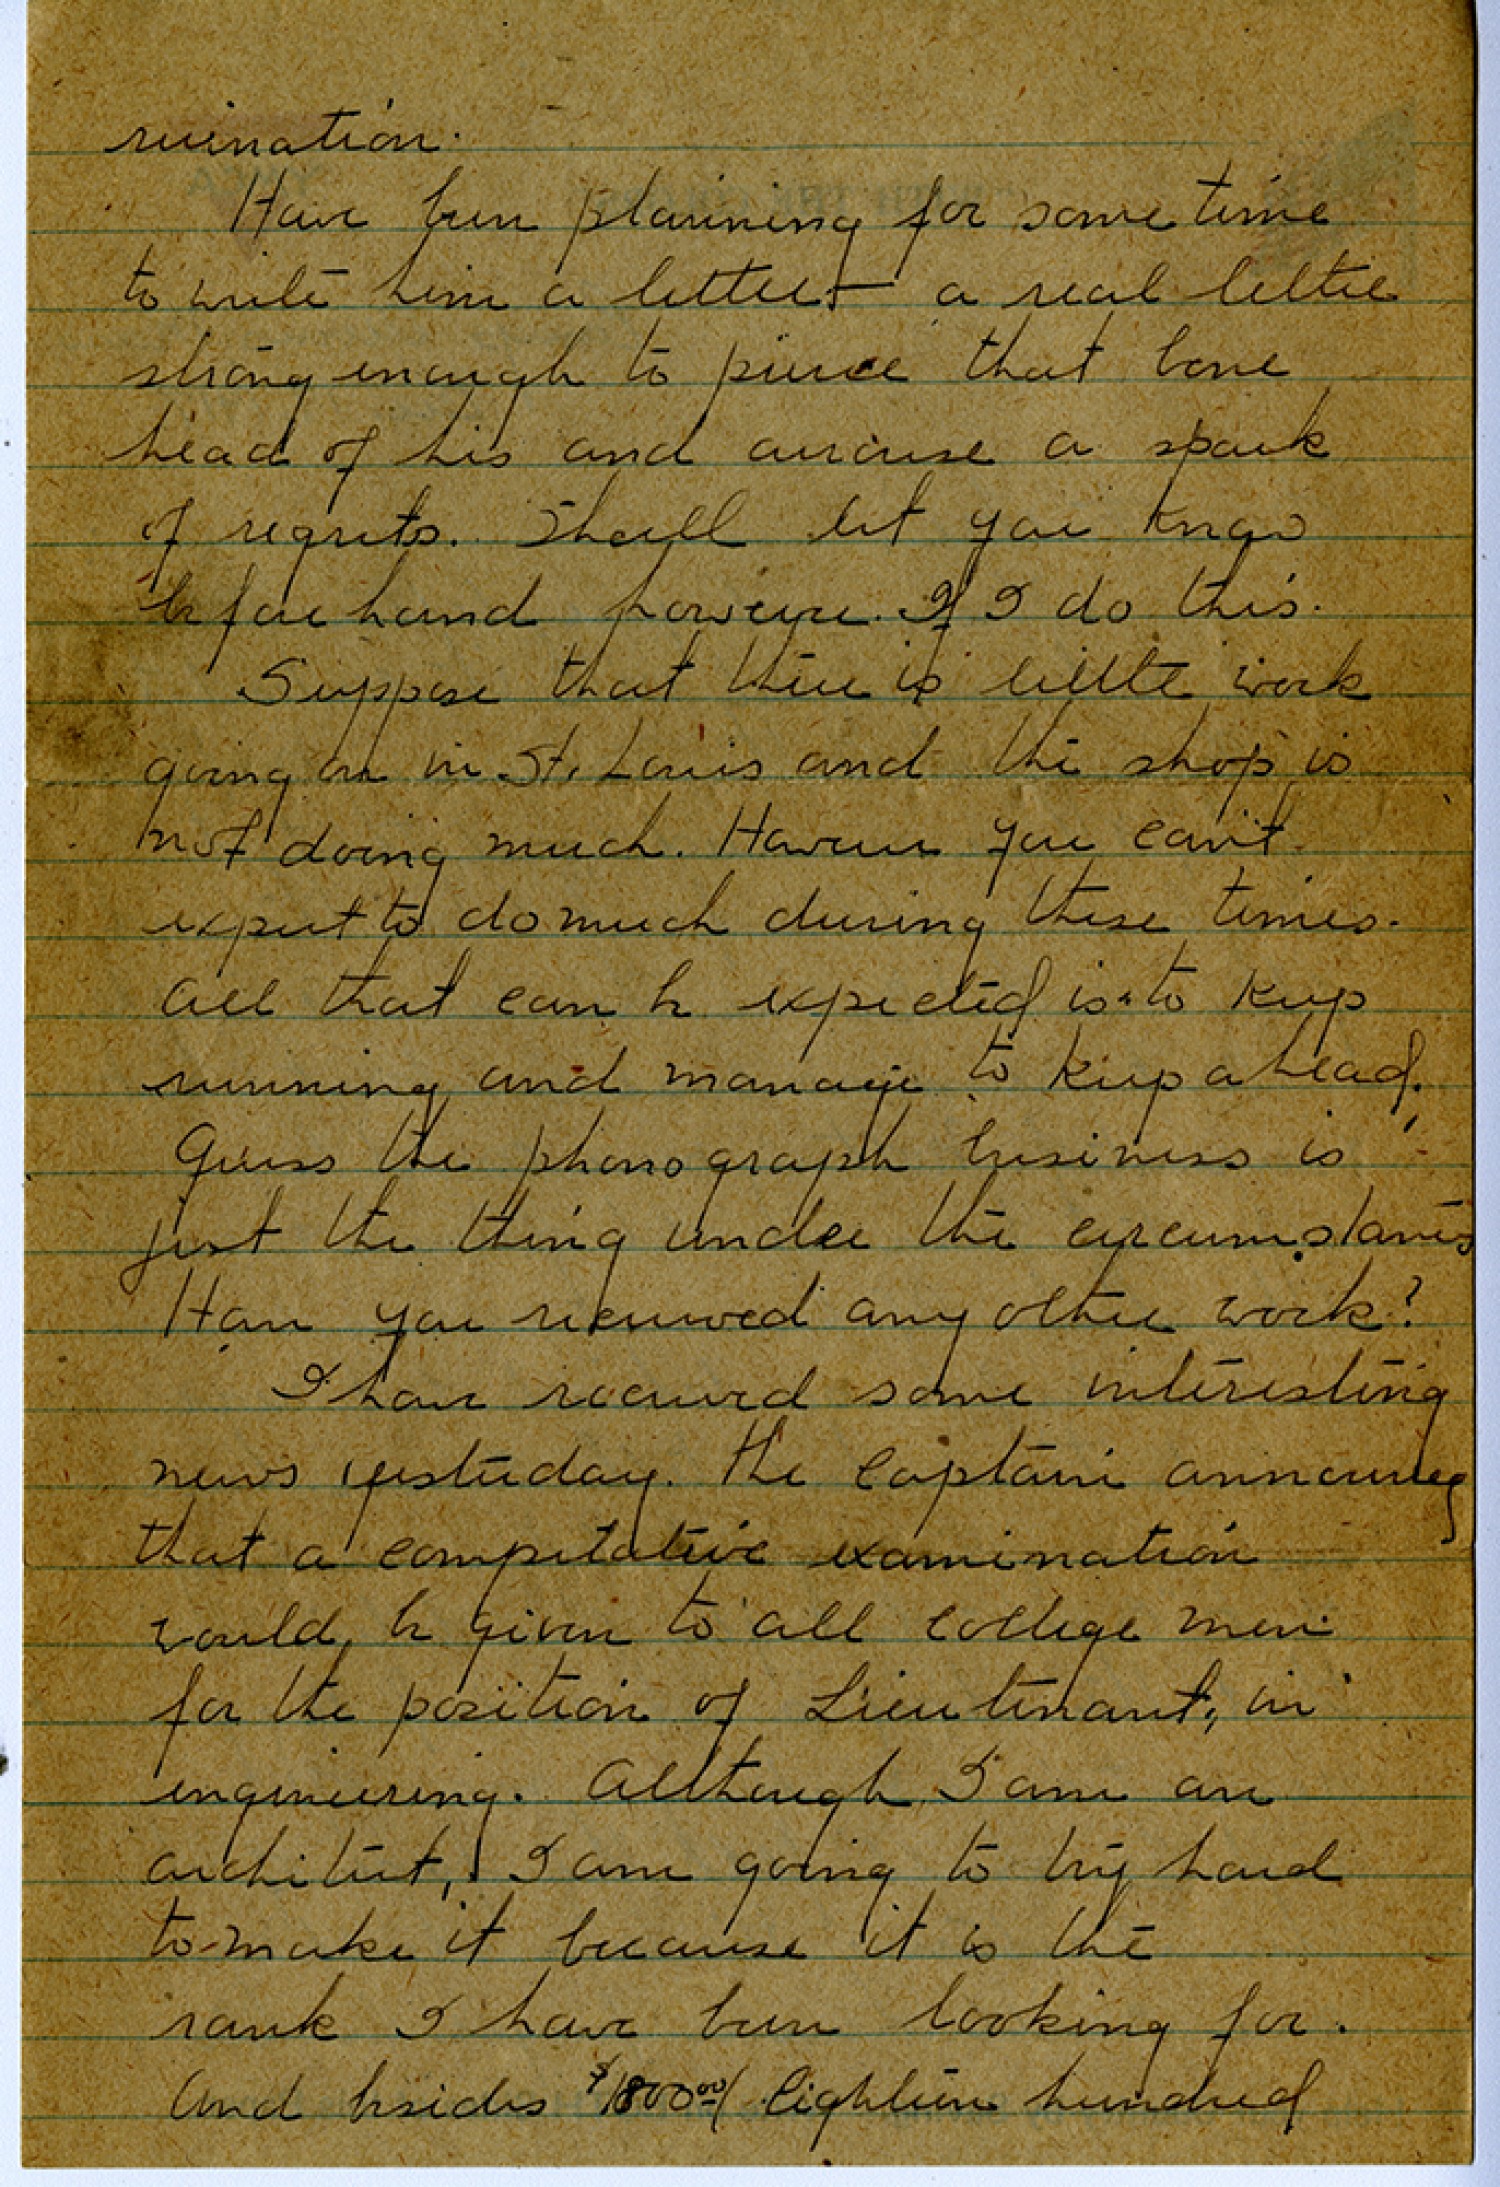 ruination.
Have been planning for some time
to write him a letter — a real letter
strong enough to pierce that bone
head of his and arouse a spark
of regrets. Shall let you know
before hand however if I do this.
Suppose that there is little work
going on in St. Louis and the shop is
not doing much. However you can't
expect to do much during these times.
All that can be expected is to keep
running and manage to keep ahead.
Guess the phonograph business is
just the thing under the circumstances
Have you received any other work?
I have received some interesting
news yesterday. The Captain announced
that a compitative examination
would be given to all college men
for the position of Lieutenant, in
engineering. Although I am an
architect, I am going to try hard
to make it because it is the
rank I have been looking for.
And besides $1800.00/ Eighteen hundred